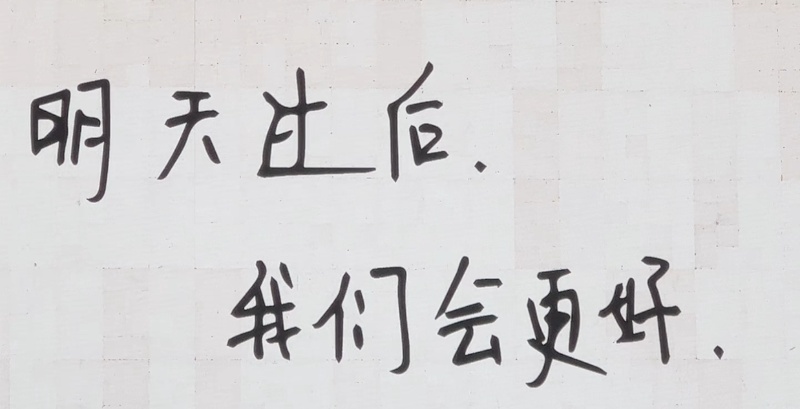 明天过后.
我们会更好.